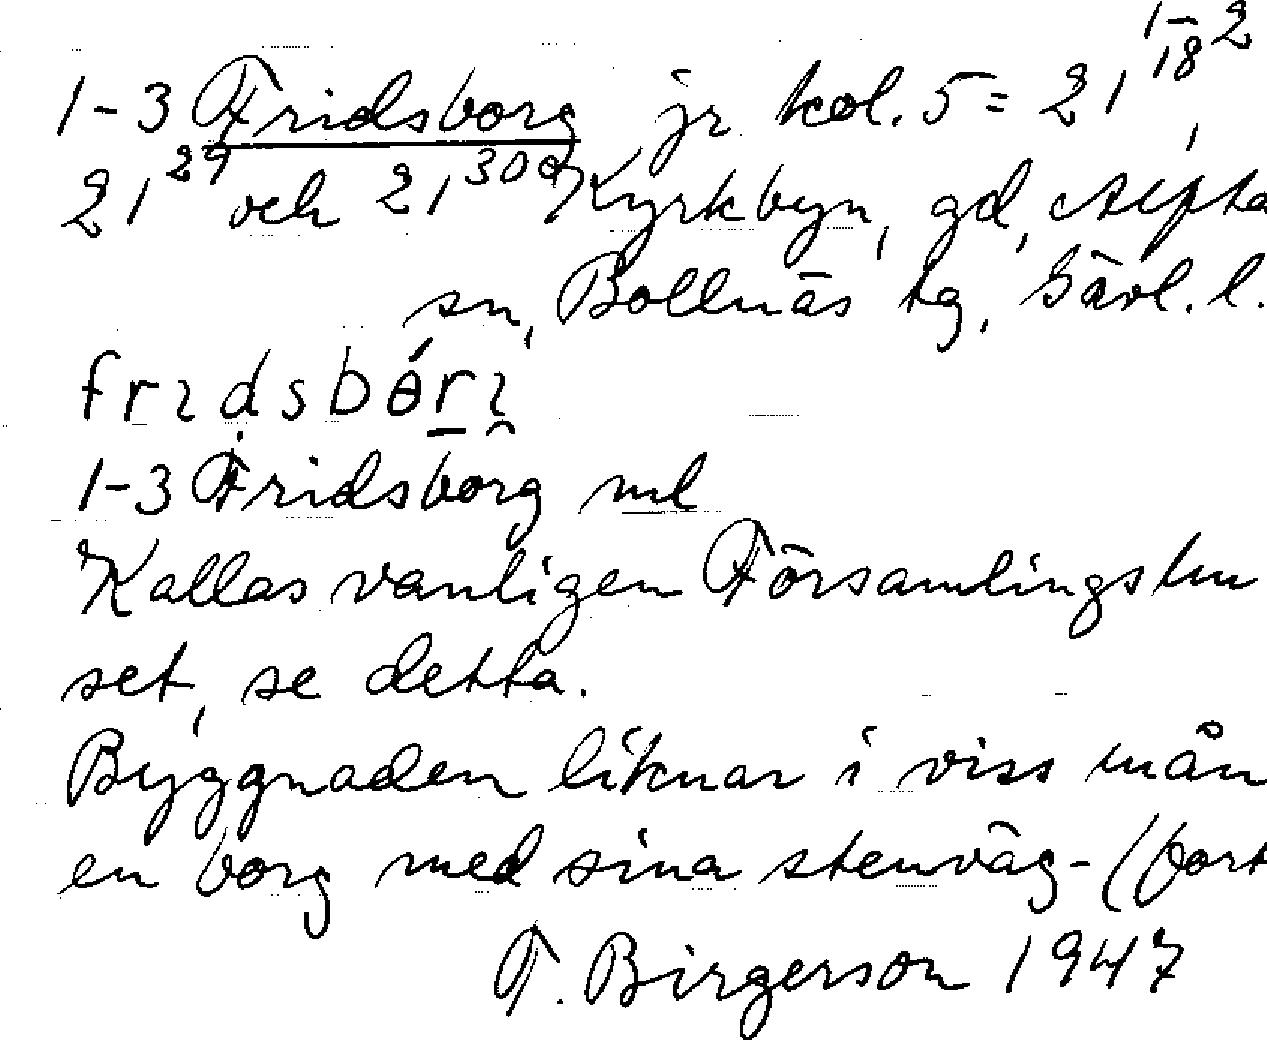 1-3 Fridsborg jr kol. 5 = 21 1-2 18,
21 29 och 21 30a Kyrkbyn, gd, Alfta
sn, Bollnäs tg, Gävl. l.
1-3 Fridsborg ml
Kallas vanligen Församlingshu
set, se detta.
Byggnaden liknar i viss mån
en borg med sina stenväg- (fort
T. Birgerson 1947